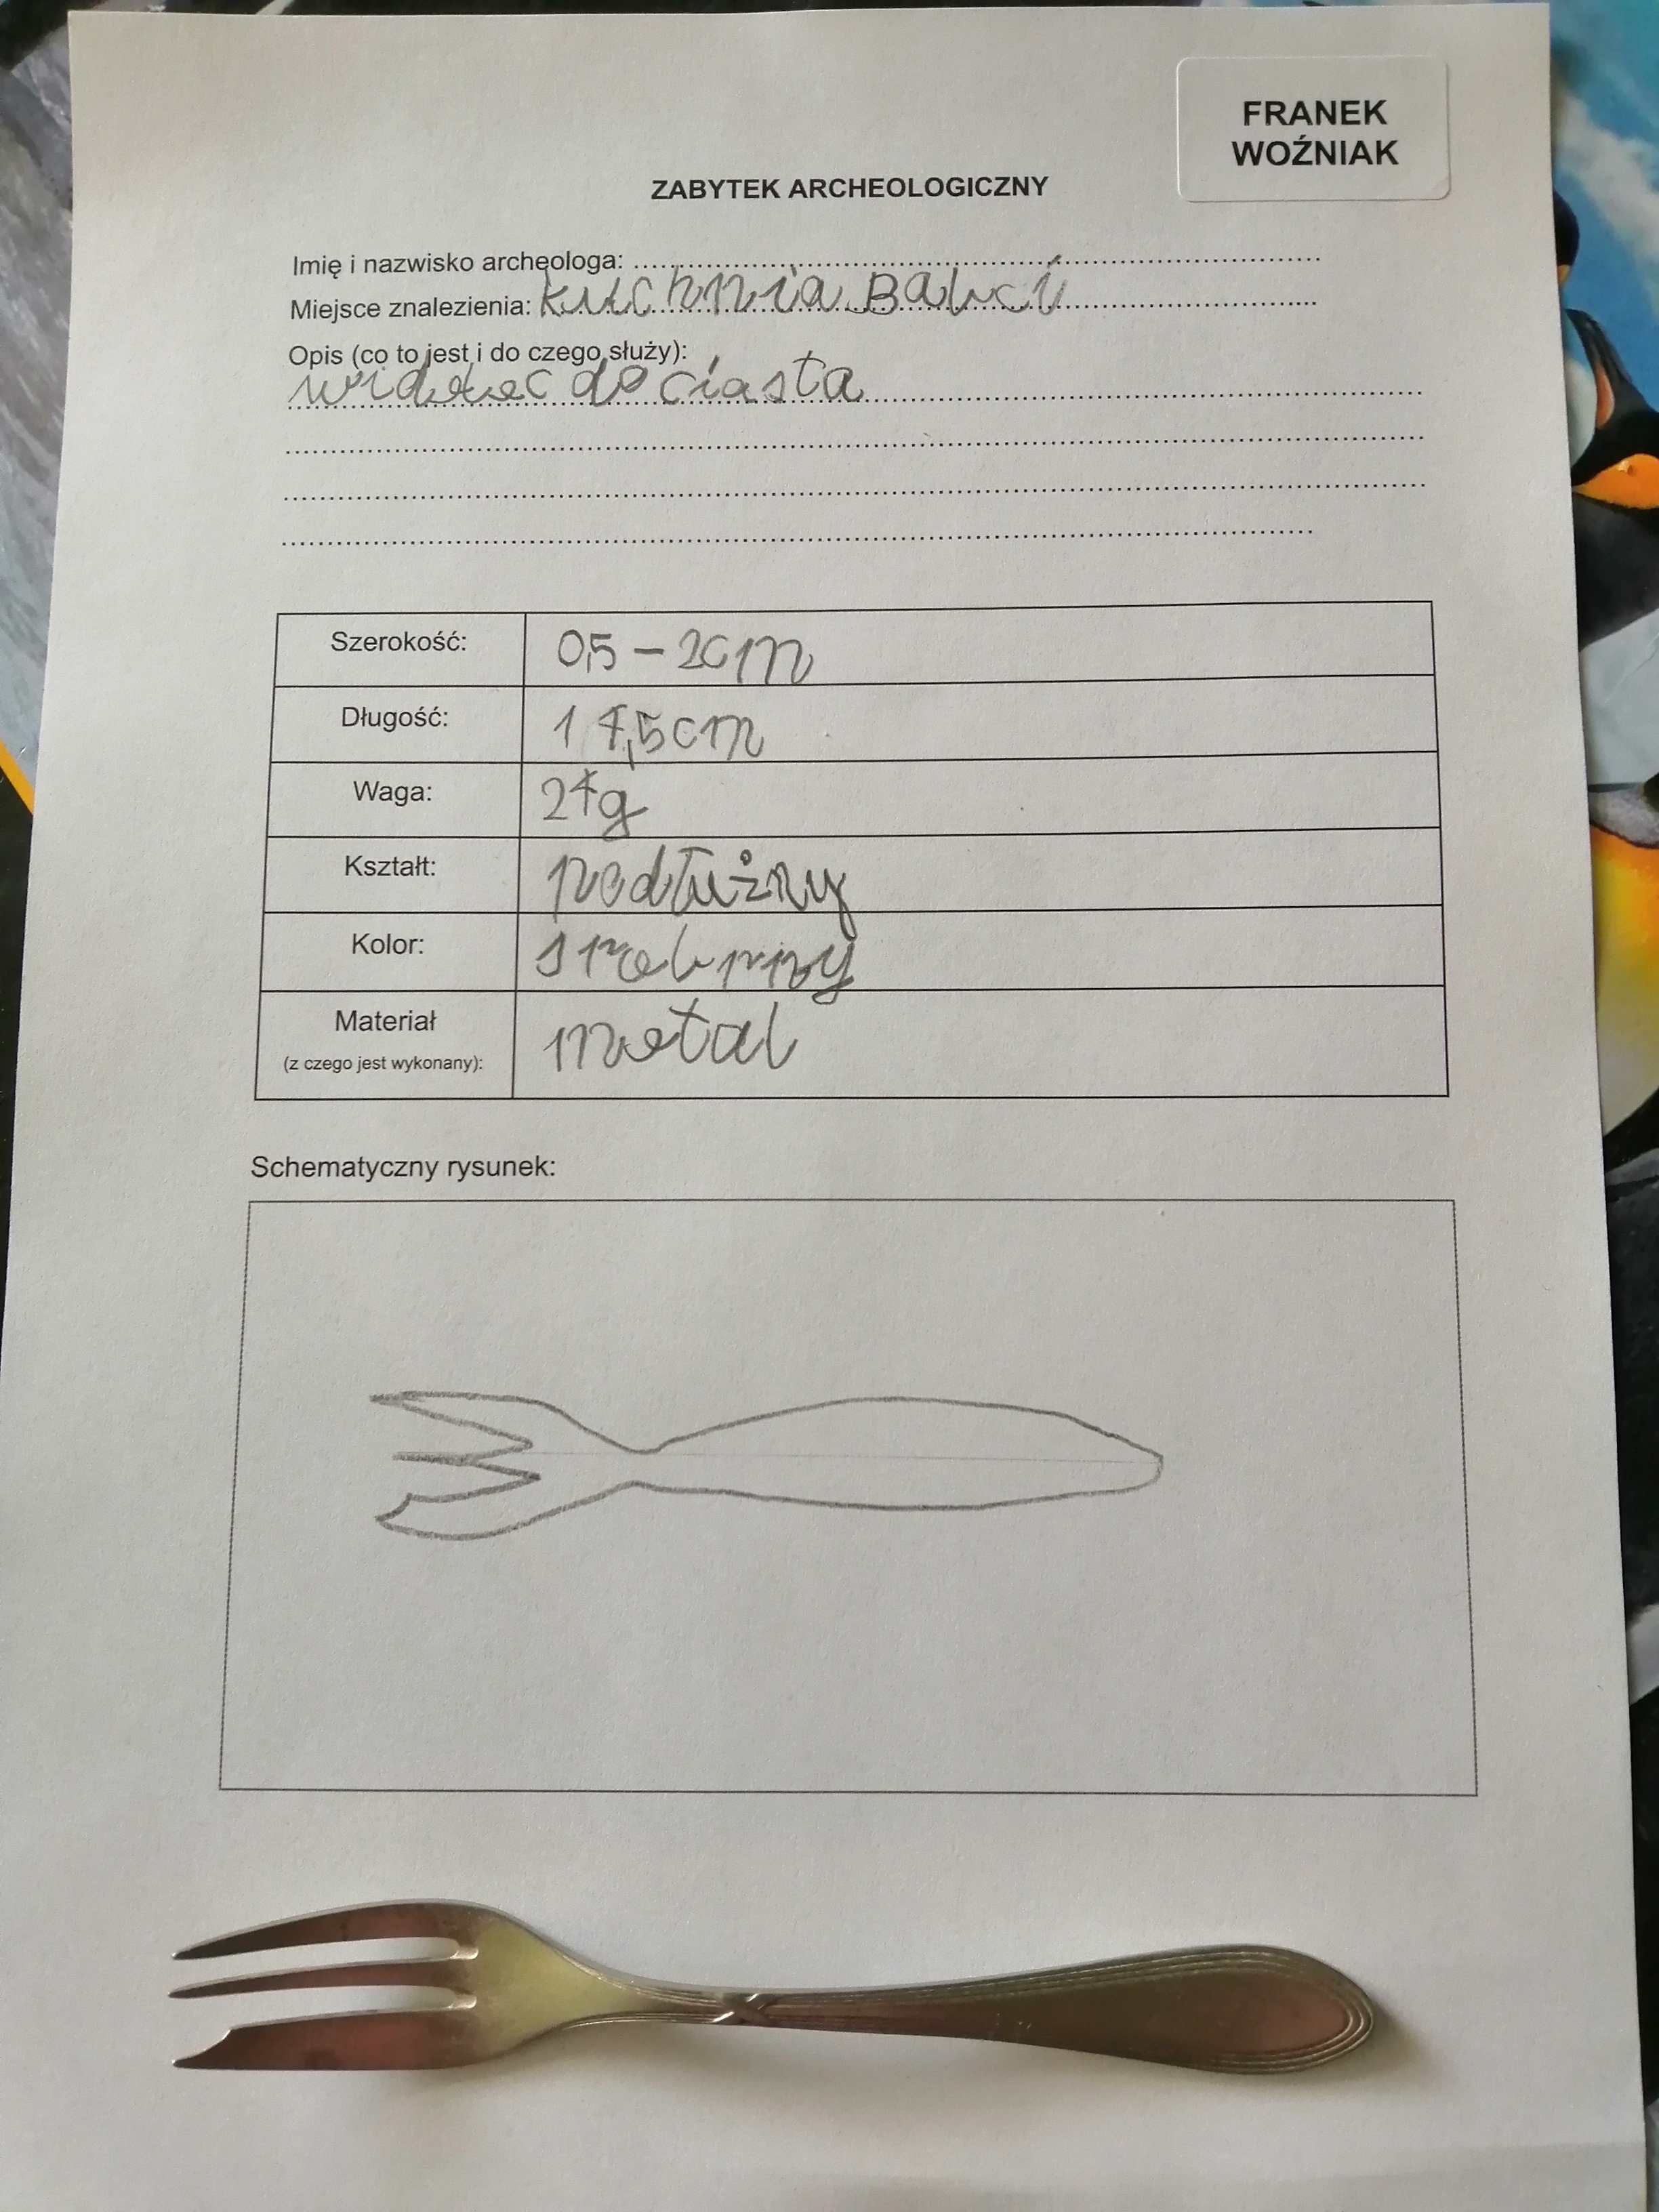 FRANEK
WOŹNIAK
ZABYTEK ARCHEOLOGICZNY
Imię i nazwisko archeologa: ........................
Miejsce znalezienia: kuchnia Babci
Opis (co to jest i do czego służy):
widelec do ciasta
Szerokość: 0,5 – 2cm
Długość: 14,5cm
Waga: 24g
Kształt: podłużny
Kolor: srebrny
Materiał metal
(z czego jest wykonany):
Schematyczny rysunek: